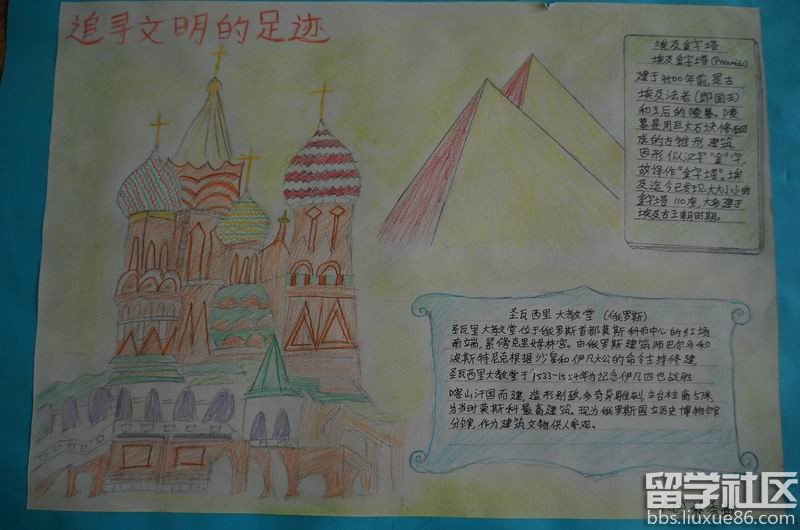 追寻文明的足迹
埃及金字塔
埃及金字塔(Piramids)
建于4500年前,是古
埃及法老(即国王)
和王后的陵墓。陵
墓是用巨大石块修砌
成的方锥形建筑,
因形似汉字“金”字,
故译作“金字塔”。埃
及迄今已发现大大小小的
金字塔110座,大多建于
埃及古王朝时期。
圣瓦西里大教堂(俄罗斯)
圣瓦里大教堂位于俄罗斯首都莫斯科市中心的红场
南端,紧傍克里姆林宫。由俄罗斯建筑师巴尔马和
波斯特尼克根据沙皇和伊凡大公的命令主持修建,
圣瓦西里大教堂于1533-1554年为纪念伊凡四世战胜
喀山汗国而建,造形别致,多奇异雕刻,主台柱高57米,
为当时莫斯科最高建筑。现为俄罗斯国立历史博物馆
分馆,作为建筑文物供人参观。
留学社区
bbs.liuxue86.com